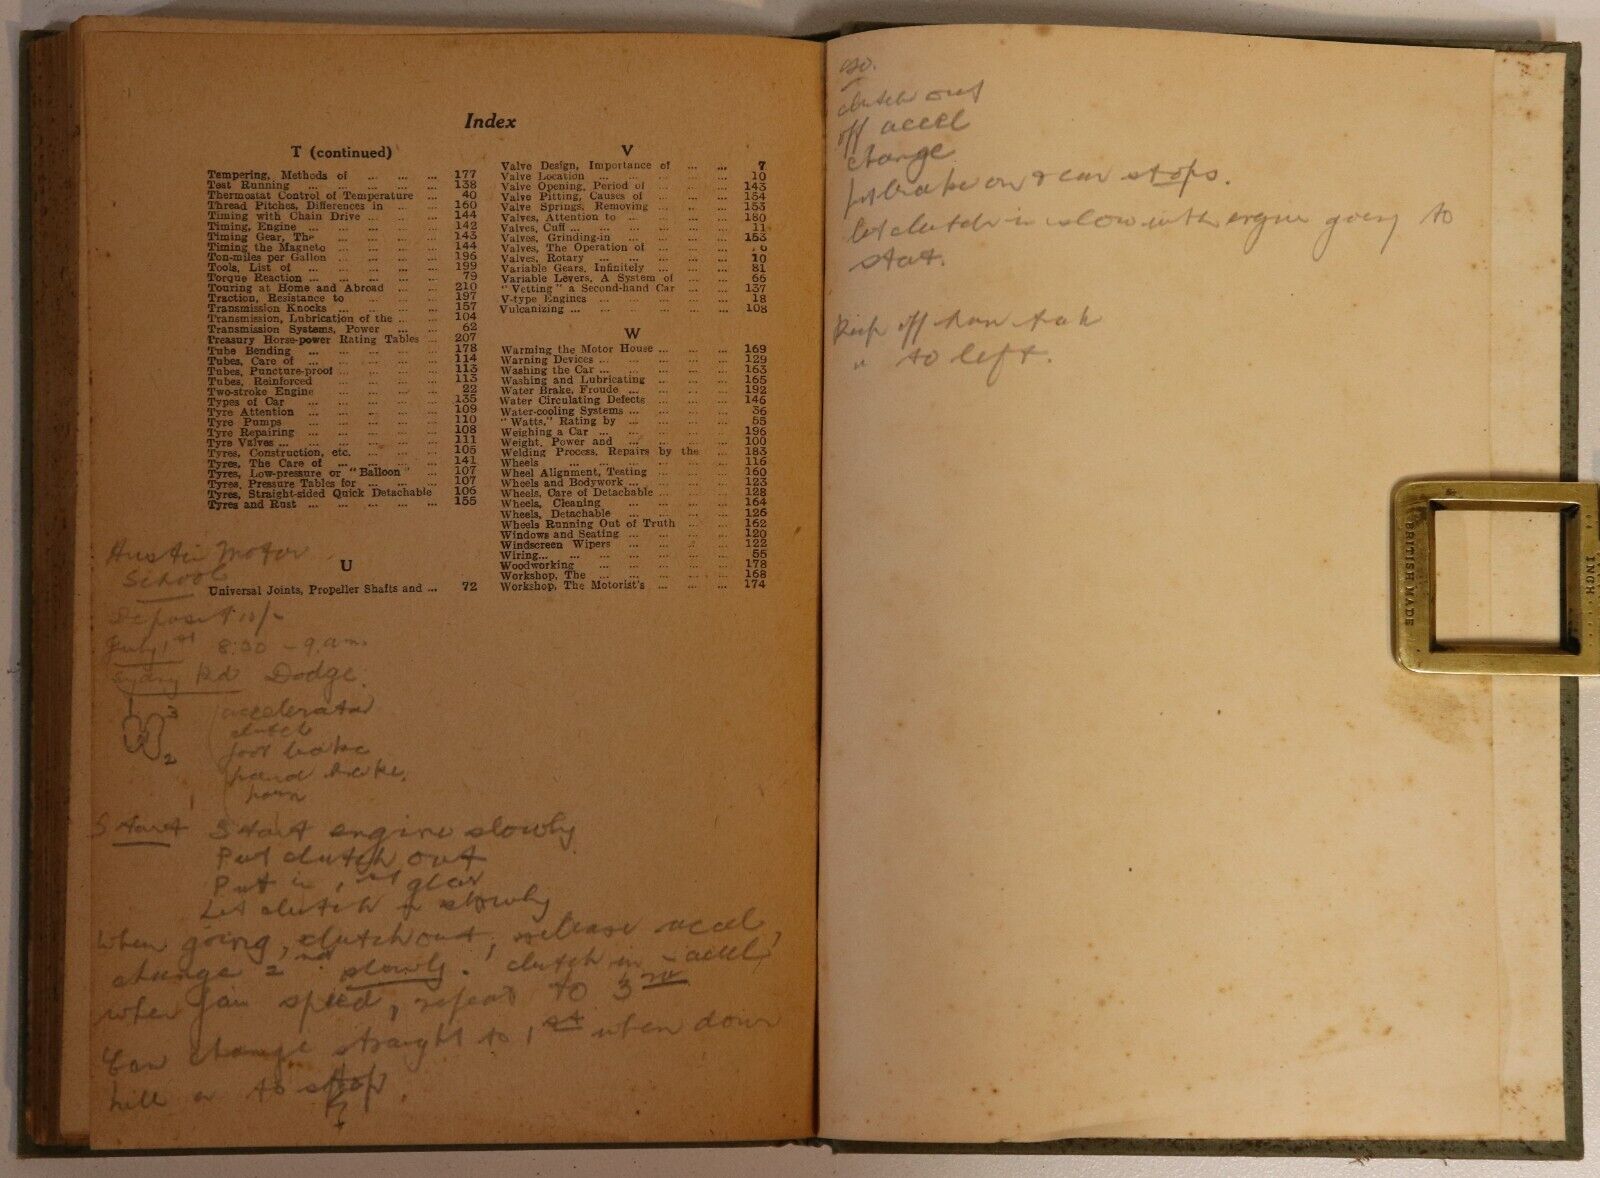 Index
T (continued)
Tempering, Methods of ... ... ... 177
Test Running ... ... ... ... 138
Thermostat Control of Temperature ... 40
Thread Pitches, Differences in ... ... 160
Timing with Chain Drive ... ... ... 144
Timing, Engine ... ... ... ... 142
Timing Gear, The ... ... ... ... 143
Timing the Magneto ... ... ... 144
Ton-miles per Gallon ... ... ... ... 196
Tools, List of ... ... ... ... ... 199
Torque Reaction ... ... ... ... ... 79
Touring at Home and Abroad ... ... 210
Traction, Resistance to ... ... ... 197
Transmission Knocks ... ... ... ... 157
Transmission, Lubrication of the ... ... 104
Transmission Systems, Power ... ... 62
Treasury Horse-power Rating Tables ... 207
Tube Bending ... ... ... ... ... 178
Tubes, Care of ... ... ... ... ... 114
Tubes, Puncture-proof ... ... ... ... 113
Tubes, Reinforced ... ... ... ... 113
Two-stroke Engine ... ... ... ... 22
Types of Car ... ... ... ... ... 135
Tyre Attention ... ... ... ... ... 109
Tyre Pumps ... ... ... ... ... 110
Tyre Repairing ... ... ... ... ... 108
Tyre Valves ... ... ... ... ... ... 111
Tyres, Construction, etc. ... ... ... 105
Tyres, The Care of ... ... ... ... 141
Tyres, Low-pressure or "Balloon" ... 107
Tyres, Pressure Tables for ... ... ... 107
Tyres, Straight-sided Quick Detachable 106
Tyres and Rust ... ... ... ... ... 155
U
Universal Joints, Propeller Shafts and ... 72
V
Valve Design, Importance of ... ... 7
Valve Location ... ... ... ... ... 10
Valve Opening, Period of ... ... ... 143
Valve Pitting, Causes of ... ... ... 154
Valve Springs, Removing ... ... ... 153
Valves, Attention to ... ... ... ... 180
Valves, Cuff ... ... ... ... ... ... 11
Valves, Grinding-in ... ... ... ... 153
Valves, The Operation of ... ... ... 6
Valves, Rotary ... ... ... ... ... 10
Variable Gears, Infinitely ... ... ... 81
Variable Levers, A System of ... ... 66
"Vetting" a Second-hand Car ... ... 137
V-type Engines ... ... ... ... ... 18
Vulcanizing ... ... ... ... ... ... 108
W
Warming the Motor House ... ... ... 169
Warning Devices ... ... ... ... ... 129
Washing the Car ... ... ... ... ... 163
Washing and Lubricating ... ... ... 165
Water Brake, Froude ... ... ... ... 192
Water Circulating Defects ... ... ... 146
Water-cooling Systems ... ... ... ... 36
"Watts," Rating by ... ... ... ... 55
Weighing a Car ... ... ... ... ... 196
Weight, Power and ... ... ... ... 100
Welding Process, Repairs by the ... 183
Wheels ... ... ... ... ... ... 116
Wheel Alignment, Testing ... ... ... 160
Wheels and Bodywork ... ... ... ... 123
Wheels, Care of Detachable ... ... ... 128
Wheels, Cleaning ... ... ... ... 164
Wheels, Detachable ... ... ... ... 126
Wheels Running Out of Truth ... ... 162
Windows and Seating ... ... ... ... 120
Windscreen Wipers ... ... ... ... 122
Wiring ... ... ... ... ... ... ... 55
Woodworking ... ... ... ... ... 178
Workshop, The ... ... ... ... ... 168
Workshop, The Motorist's ... ... ... 174
Austin Motor
School
Deposit 10/-
July 1st 8:30 - 9 a.m.
Sydney Rd Dodge.
1 3
2
accelerator
clutch
foot brake
hand brake,
horn
Start Start engine slowly
Put clutch out
Put in 1st gear
Let clutch in slowly
When going, clutch out, release accel,
change 2nd slowly. clutch in - accel,
when gain speed, repeat to 3rd
Can change straight to 1st when down
hill or to stop.
clutch out
off accel
change
foot brake on & car stops.
let clutch in slow with engine going to
start.
Keep off
" to left.
BRITISH MADE
INCH